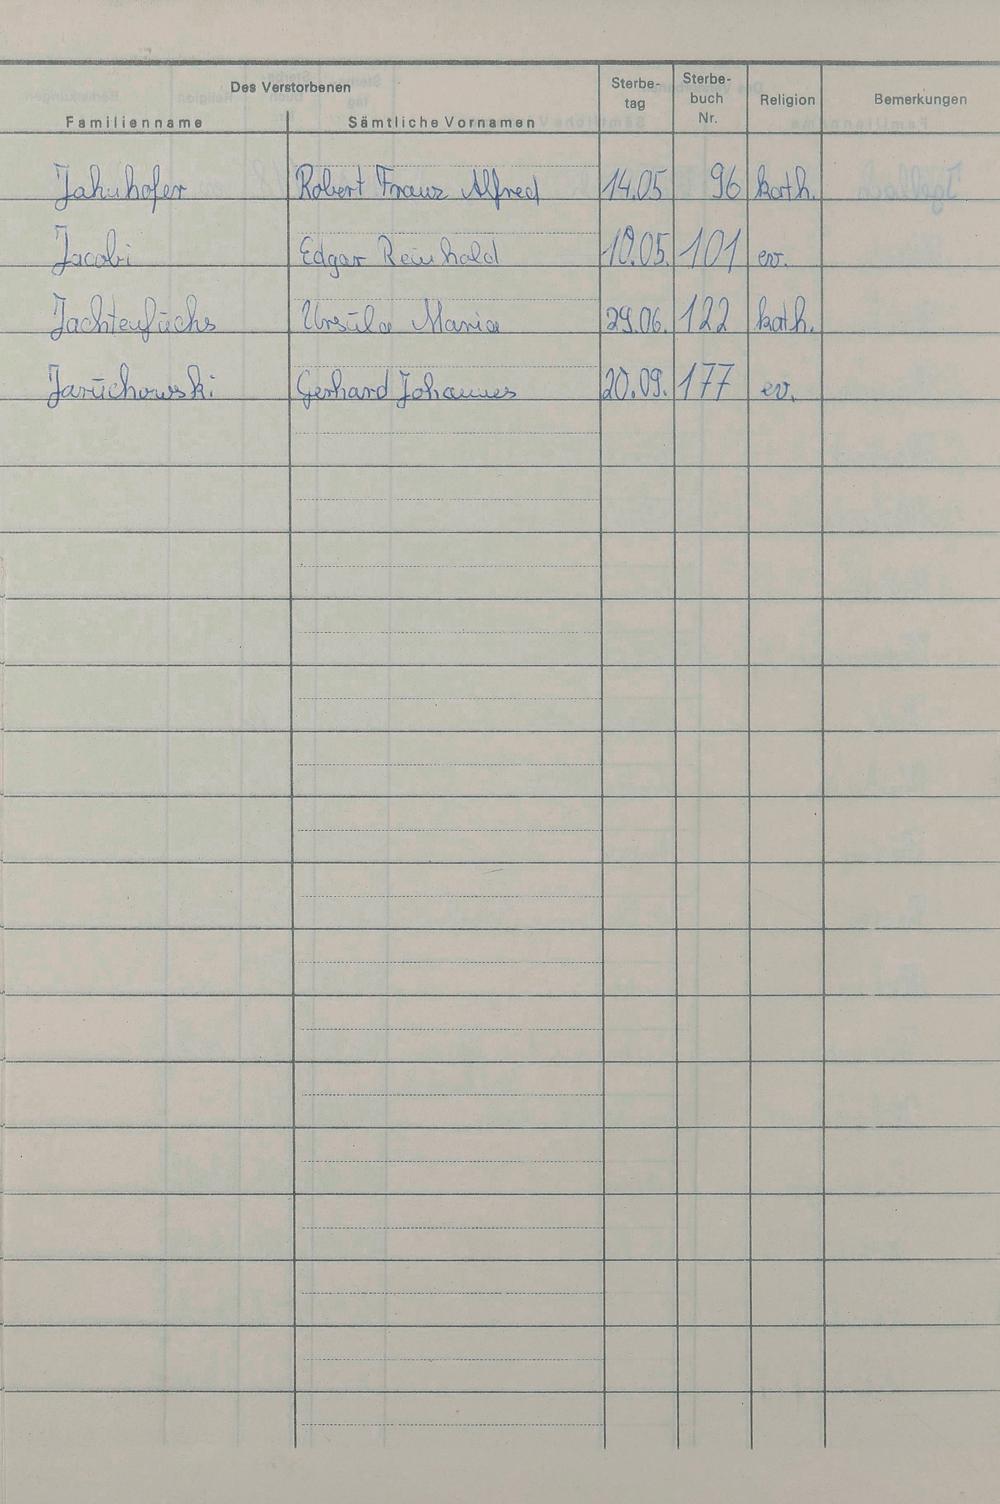 Des Verstorbenen
Familienname Sämtliche Vornamen Sterbe-tag Sterbe-buch Nr. Religion Bemerkungen
Jahnhofer Robert Franz Alfred 14.05 96 kath.
Jacobi Edgar Reinhold 10.05. 101 ev.
Jachtenfuchs Ursula Maria 29.06. 122 kath.
Jaruchowski Gerhard Johannes 20.09. 177 ev.